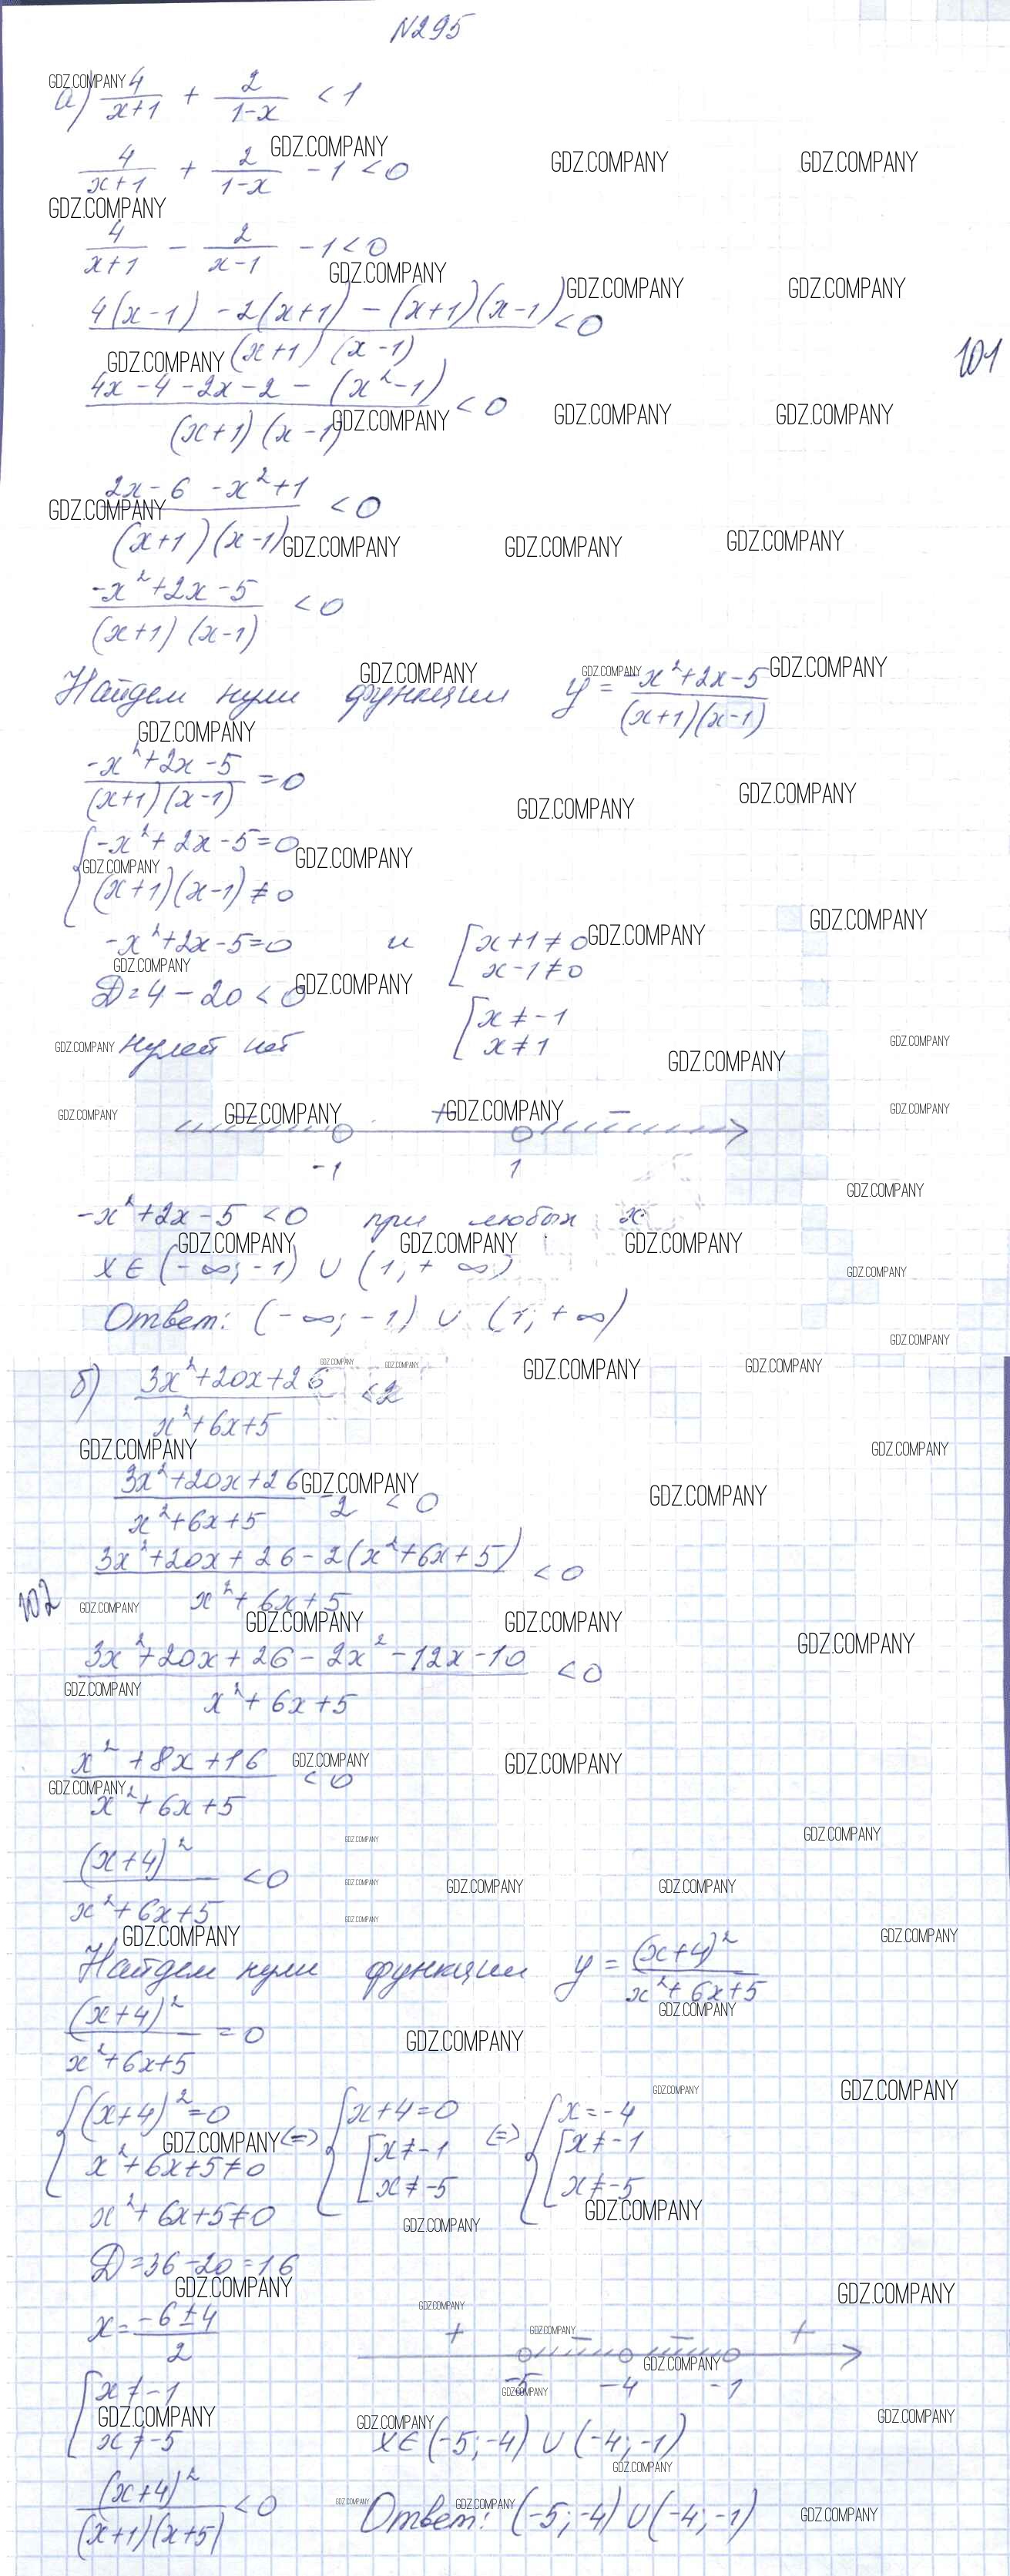 N295
а) 4/(x+1) + 2/(1-x) < 1
4/(x+1) + 2/(1-x) - 1 < 0
4/(x+1) - 2/(x-1) - 1 < 0
(4(x-1) - 2(x+1) - (x+1)(x-1))/((x+1)(x-1)) < 0
101
(4x-4-2x-2-(x²-1))/((x+1)(x-1)) < 0
(2x-6-x²+1)/((x+1)(x-1)) < 0
(-x²+2x-5)/((x+1)(x-1)) < 0
Найдем нули функции y = (-x²+2x-5)/((x+1)(x-1))
(-x²+2x-5)/((x+1)(x-1)) = 0
{ -x²+2x-5=0
(x+1)(x-1) ≠ 0
-x²+2x-5=0 и [ x+1≠0
x-1≠0
D=4-20<0
[ x≠-1
нулей нет x≠1
- + -
-1 1
-x²+2x-5 <0 при любых x
x∈(-∞;-1) ∪ (1;+∞)
Ответ: (-∞;-1) ∪ (1;+∞)
б) (3x²+20x+26)/(x²+6x+5) < 2
(3x²+20x+26)/(x²+6x+5) - 2 < 0
(3x²+20x+26-2(x²+6x+5))/(x²+6x+5) < 0
102
(3x²+20x+26-2x²-12x-10)/(x²+6x+5) < 0
(x²+8x+16)/(x²+6x+5) < 0
(x+4)²/(x²+6x+5) < 0
Найдем нули функции y = (x+4)²/(x²+6x+5)
(x+4)²/(x²+6x+5) = 0
{ (x+4)²=0 (=) { x+4=0 (=) { x=-4
x²+6x+5≠0 [ x≠-1 [ x≠-1
x≠-5 x≠-5
x²+6x+5≠0
D=36-20=16
x=(-6±4)/2
+ - - +
-5 -4 -1
[ x≠-1
x≠-5
x∈(-5;-4) ∪ (-4;-1)
(x+4)²/((x+1)(x+5)) < 0
Ответ: (-5;-4) ∪ (-4;-1)
GDZ.COMPANY